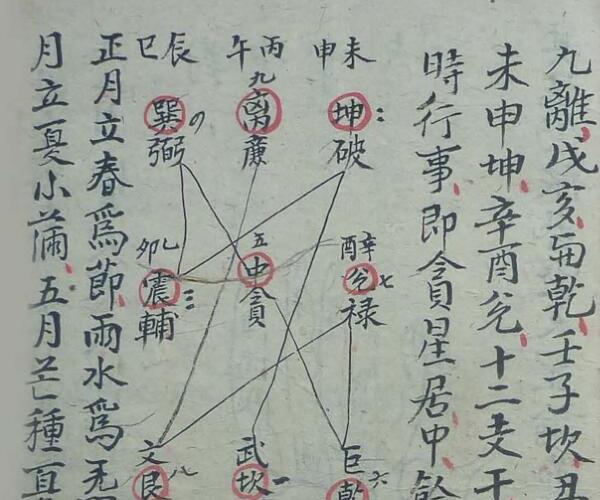 九離戌亥面乾壬子坎丑
未申坤辛酉兌十二支干
時行事即貪星居中餘
未申
坤
破
丙午
九
離
廉
辰巳
巽
弼
辛酉
兌七
祿
五
中
貪
乙卯
震三
輔
巨
乾六
武
坎一
文
艮八
正月立春為節雨水為
月立夏小滿五月芒種夏